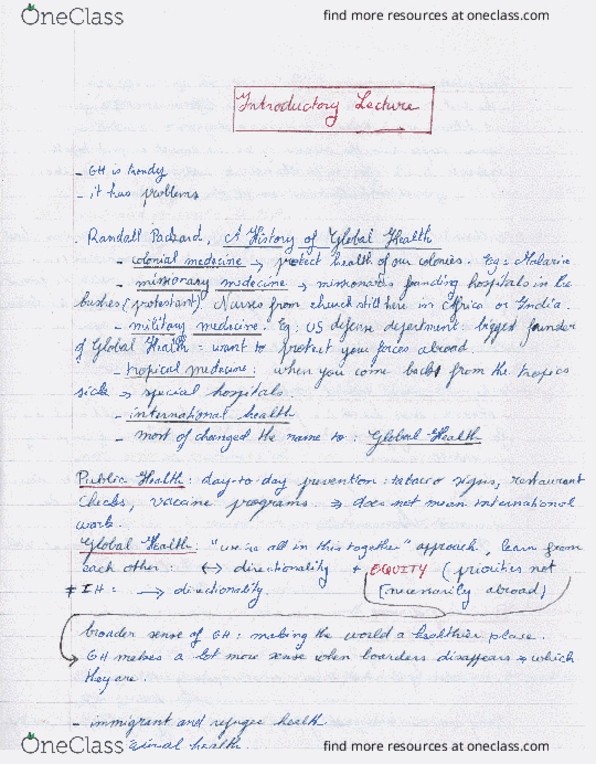 OneClass
find more resources at oneclass.com
Introductory Lecture
- GH is trendy
- it has problems
. Randall Packard, A History of Global Health
- colonial medecine → protect health of our colonies. Eg: Malaria
- missionary medecine → missionaries founding hospitals in the
bushes (protestant). Nurses from church still here in Africa or India.
- military medecine. Eg: US defense department: biggest founder
of Global Health = want to protect your forces abroad.
- tropical medecine: when you come back from the tropics
sick → special hospitals.
- international health
- most of changed the name to: Global Health
Public Health: day-to-day prevention: tobacco signs, restaurant
checks, vaccine programs. → does not mean international
work.
Global Health: "we're all in this together" approach, learn from
each other: ↔ directionality + EQUITY (priorities not
≠ IH: → directionality. necessarily abroad)
broader sense of GH: making the world a healthier place.
GH makes a lot more sense when boarders disappears → which
they are.
- immigrant and refugee health
health.
OneClass
find more resources at oneclass.com